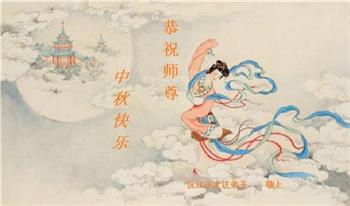 恭祝师尊
中秋快乐
大法弟子 敬上